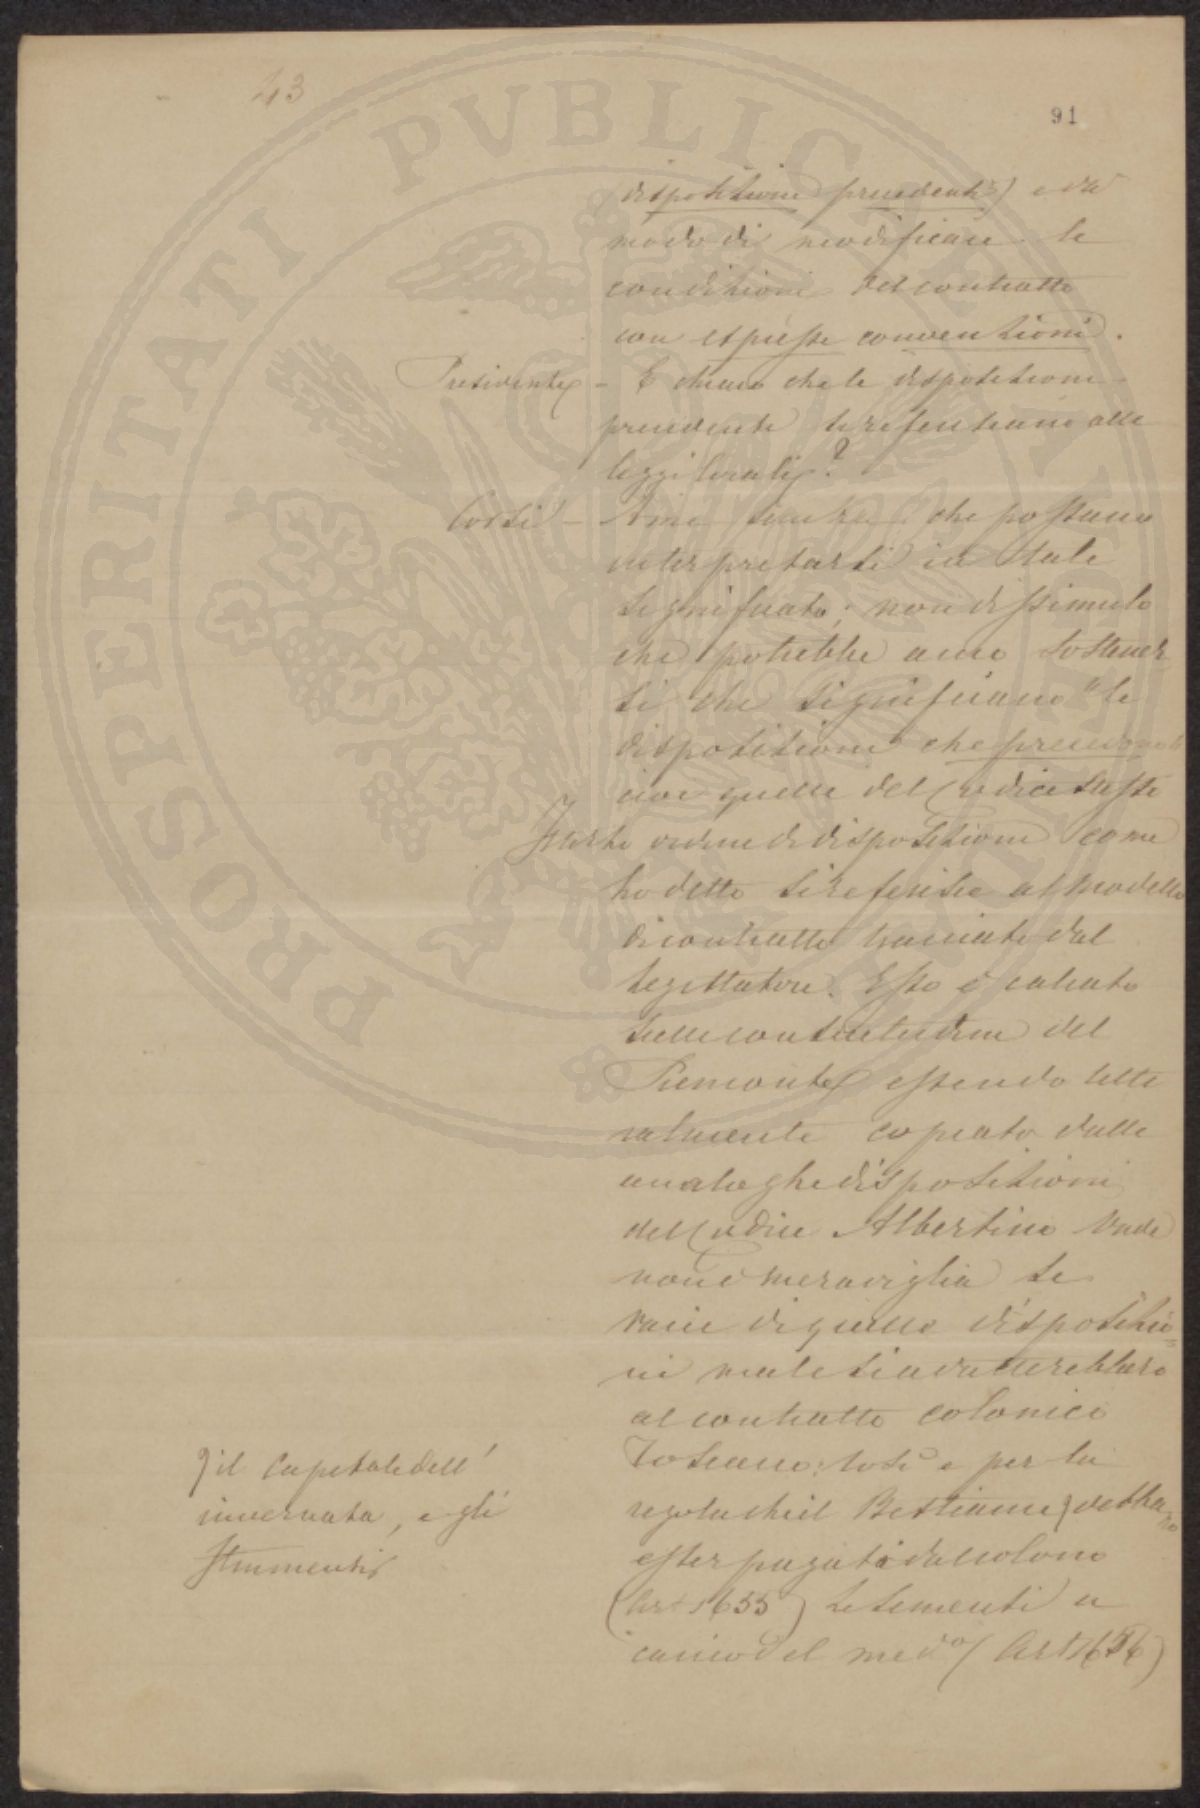 43
91
disposizioni precedenti) e da
modo di modificare le
condizioni del contratto
con espresse convenzioni.
Presidente - È chiaro che le disposizioni
precedenti si riferiscano alle
leggi locali?
Corsi - A me sembra che possano
interpretarsi in tale
significato; non dissimulo
che potrebbe anco sostener
si che significano "le
disposizioni che precedono"
cioè quelle del Codice stesse
Il terzo ordine di disposizioni come
ho detto si riferisce al modello
di contratto tracciato dal
legislatore. Esso è calcato
sulle consuetudini del
Piemonte essendo lette
ralmente copiato dalle
analoghe disposizioni
del Codice Albertino. Onde
non è meraviglia se
varie di quelle disposizio=
ni male si adatterebbero
al contratto colonico
Toscano: così è per la
regola che il Bestiame } debba
no
esser pagati dal colono
(Art 1655) le sementi a
carico del med.o (Art 1656)
} il capitale dell'
invernata, e gli
strumenti
PROSPERITATI PVBLICAE